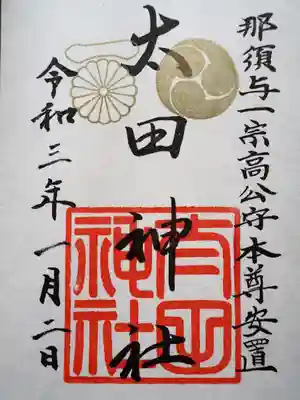 那須与一宗高公守本尊安置
大田神社
令和三年一月二日
大田神社